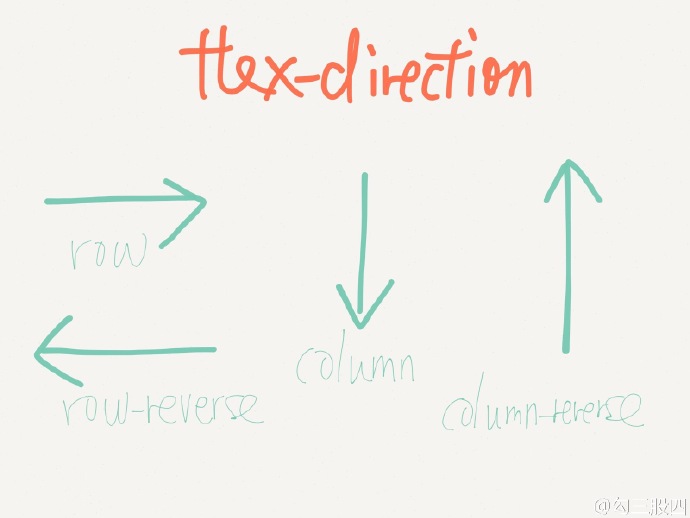 flex-direction
row
row-reverse
column
column-reverse
@勾三股四